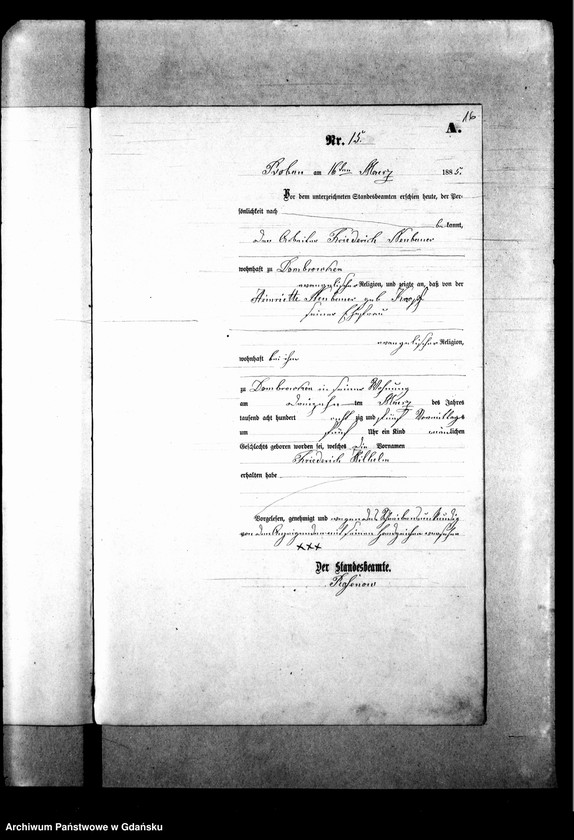 16
A.
Nr. 15.
Boban am 16ten Maerz 1885.
Vor dem unterzeichneten Standesbeamten erschien heute, der Per-
sönlichkeit nach
be kannt,
der Arbeiter Friederich Neubauer
wohnhaft zu Dombrowken
evangelischer Religion, und zeigte an, daß von der
Henriette Neubauer geb Kropf
seiner Ehefrau
evangelischer Religion,
wohnhaft bei ihm
zu Dombrowken in seiner Wohnung
am dreizehn ten Maerz des Jahres
tausend acht hundert acht zig und fünf Vormittags
um fünf Uhr ein Kind männlichen
Geschlechts geboren worden sei, welches die Vornamen
Friederich Wilhelm
erhalten habe
Vorgelesen, genehmigt und wegen des Schreibensunkundig
von dem Anzeigenden mit seinem Handzeichen versehen
xxx
Der Standesbeamte.
Archiwum Państwowe w Gdańsku